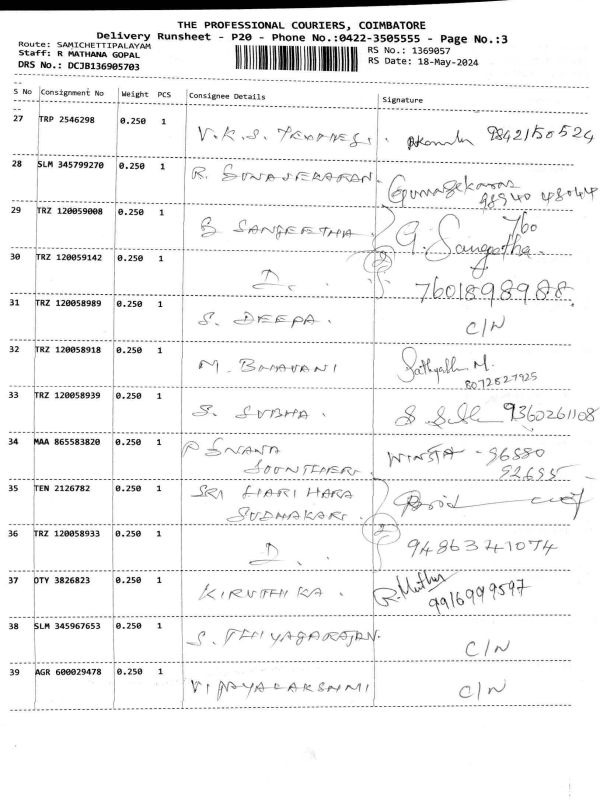 THE PROFESSIONAL COURIERS, COIMBATORE
Delivery Runsheet - P20 - Phone No.:0422-3505555 - Page No.:3
Route: SAMICHETTIPALAYAM
Staff: R MATHANA GOPAL
DRS No.: DCJB136905703
RS No.: 1369057
RS Date: 18-May-2024
S No Consignment No Weight PCS Consignee Details Signature
27 TRP 2546298 0.250 1 V.K.S. 9842150524
28 SLM 345799270 0.250 1 R. GUNASEKARAN. Gunasekaran
98940 48044
29 TRZ 120059008 0.250 1 G SANGEETHA. G. Sangeetha.
760
30 TRZ 120059142 0.250 1 D. 2 7601898988.
31 TRZ 120058989 0.250 1 S. DEEPA. C/N
32 TRZ 120058918 0.250 1 M. BHAVANI M.
8072827925
33 TRZ 120058939 0.250 1 S. SUBHA. 9360261108
34 MAA 865583820 0.250 1 P GNANA WINSTA - 96880
92655
35 TEN 2126782 0.250 1 SRI HARI HARA
SUDHAKAR.
36 TRZ 120058933 0.250 1 D. 2 9486341074
37 OTY 3826823 0.250 1 KIRUTHIKA. R. Muthu
9916999597
38 SLM 345967653 0.250 1 S. THIYAGARAJAN. C/N
39 AGR 600029478 0.250 1 VIJAYALAKSHMI C/N